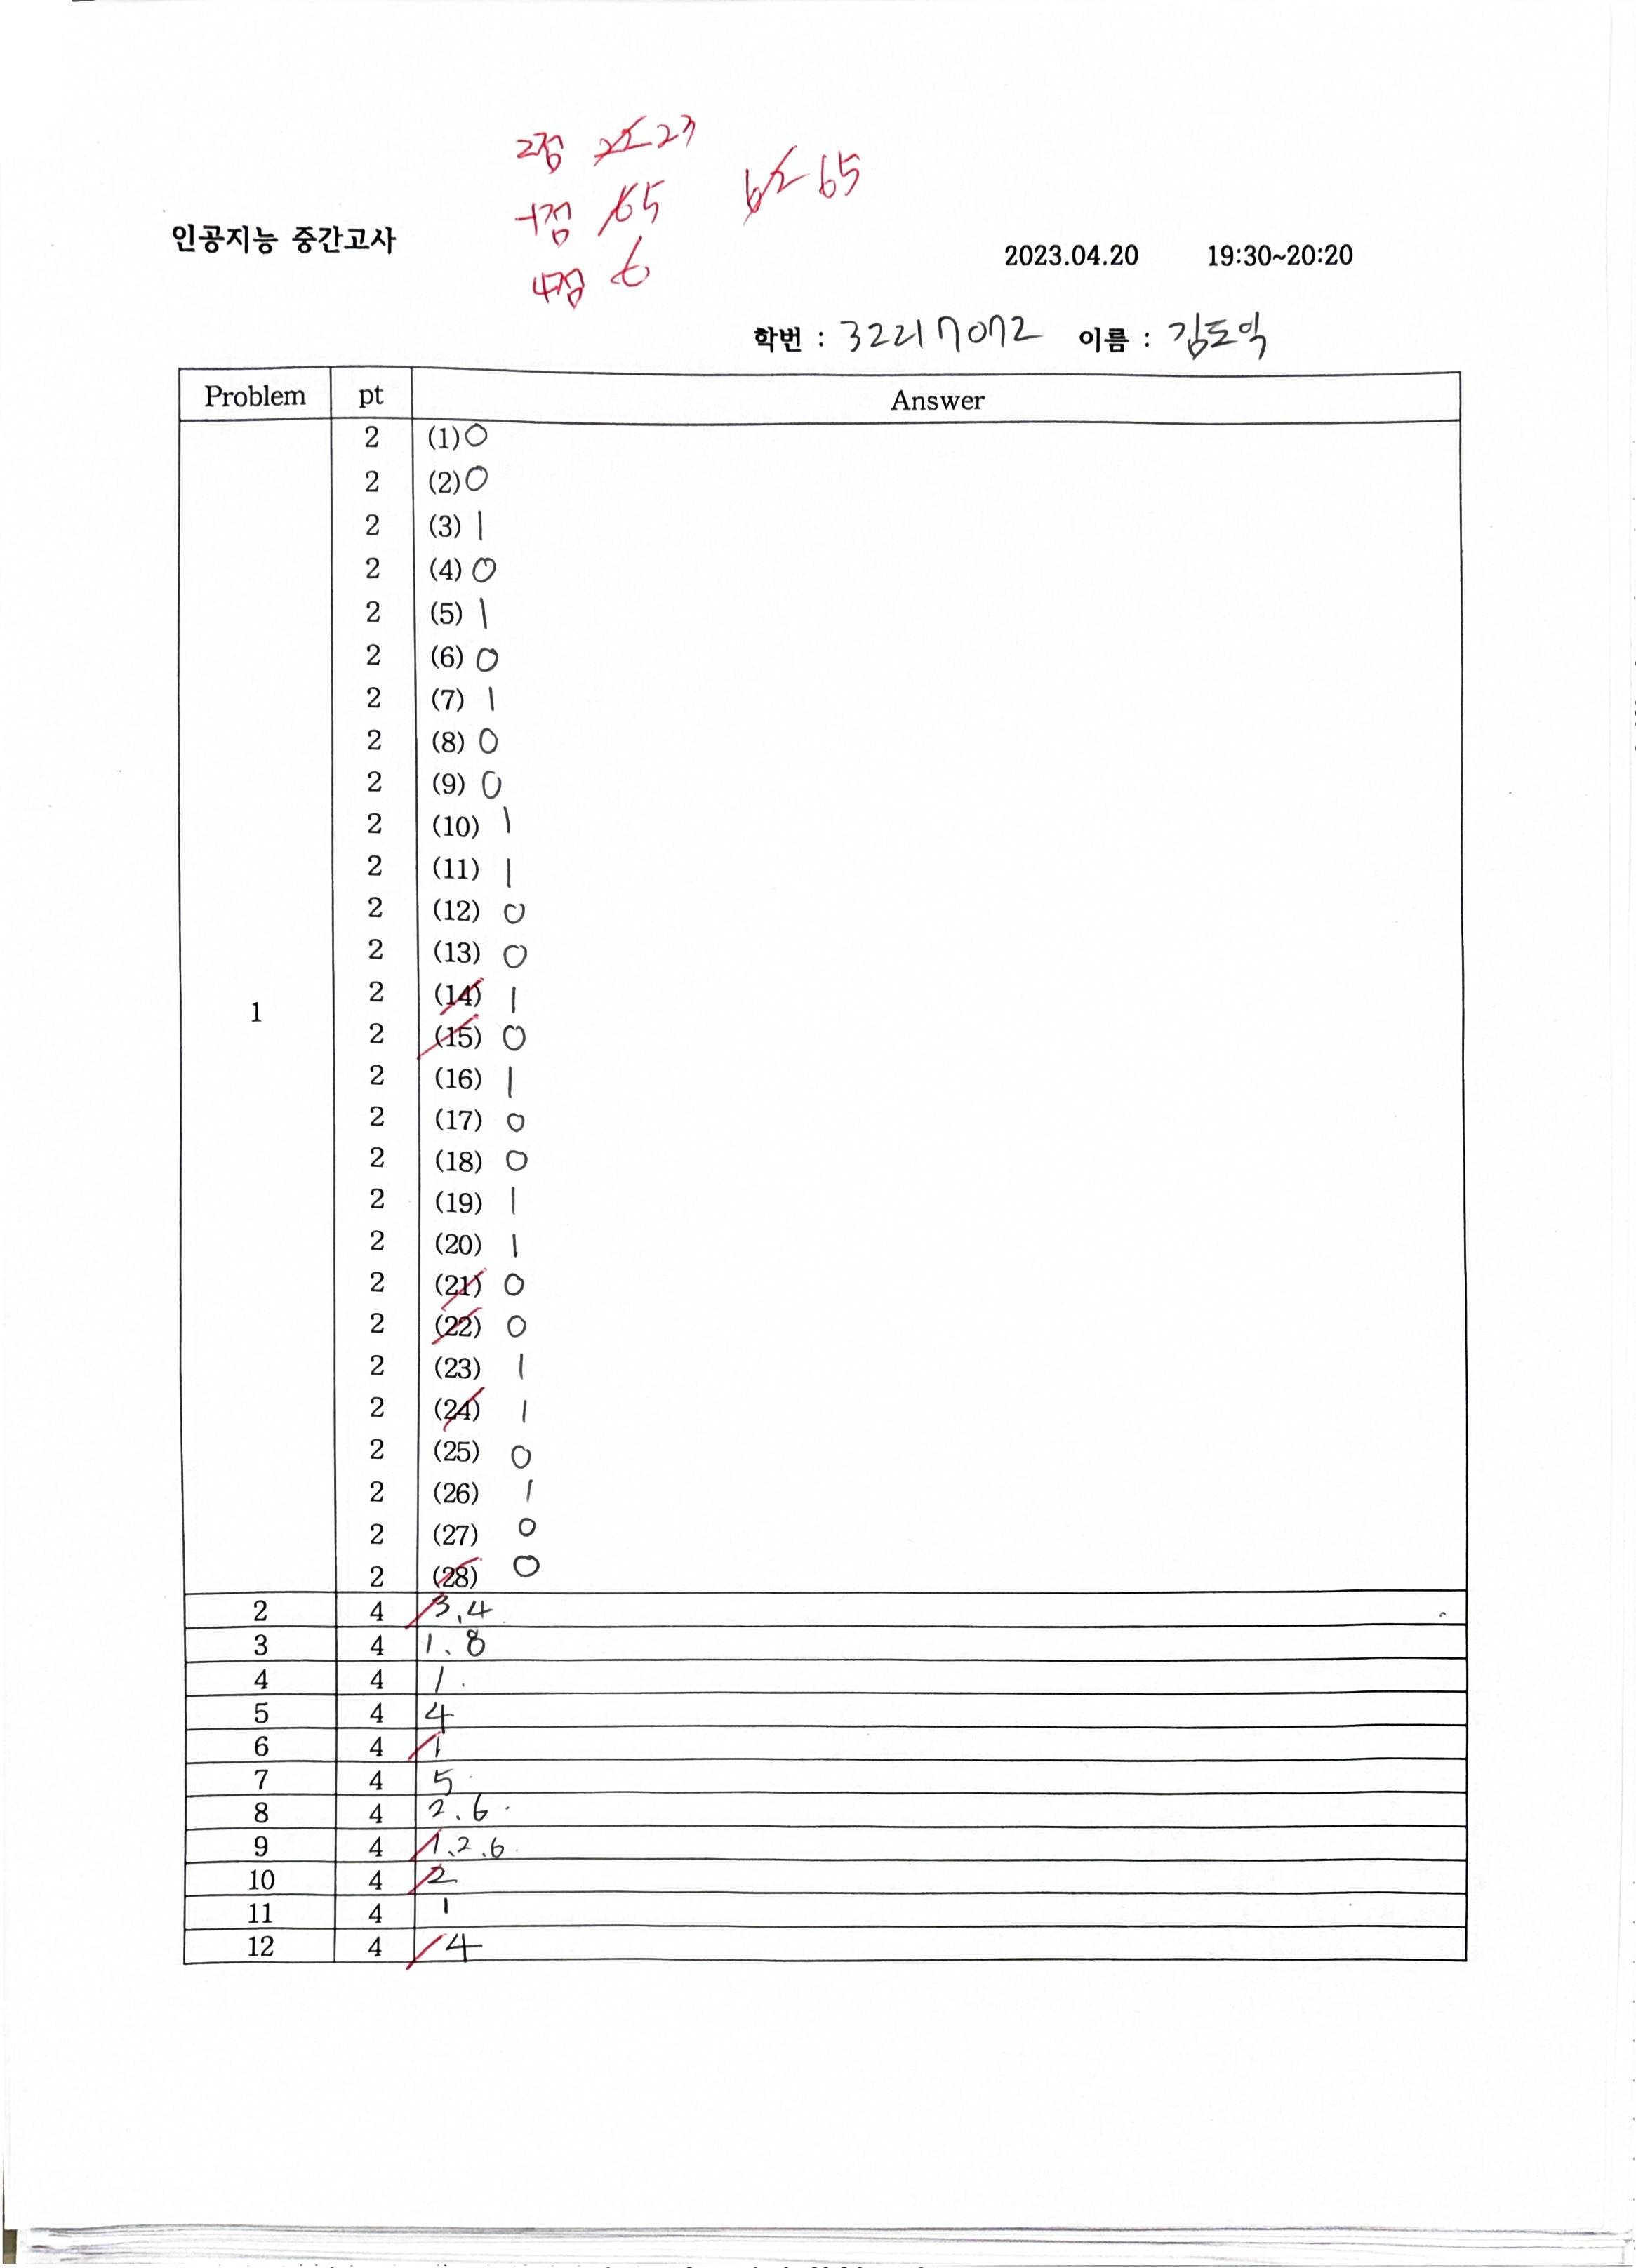 2점 23
-1점 65 65
인공지능 중간고사
4점 6
2023.04.20 19:30~20:20
학번 : 32217072 이름 : 김도익
Problem pt Answer
2 (1) 0
2 (2) 0
2 (3) 1
2 (4) 0
2 (5) 1
2 (6) 0
2 (7) 1
2 (8) 0
2 (9) 0
2 (10) 1
2 (11) 1
2 (12) 0
2 (13) 0
2 (14) 1
1
2 (15) 0
2 (16) 1
2 (17) 0
2 (18) 0
2 (19) 1
2 (20) 1
2 (21) 0
2 (22) 0
2 (23) 1
2 (24) 1
2 (25) 0
2 (26) 1
2 (27) 0
2 (28) 0
2 4 3,4
3 4 1、8
4 4 1.
5 4 4
6 4 1
7 4 5
8 4 2.6
9 4 1.2.6
10 4 2
11 4 1
12 4 4